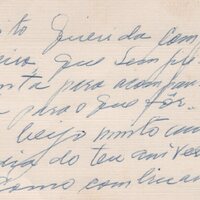 to querida com
que sempre
ta para acompan
para o que fôr.
beijo muito am
do teu anivers
como com